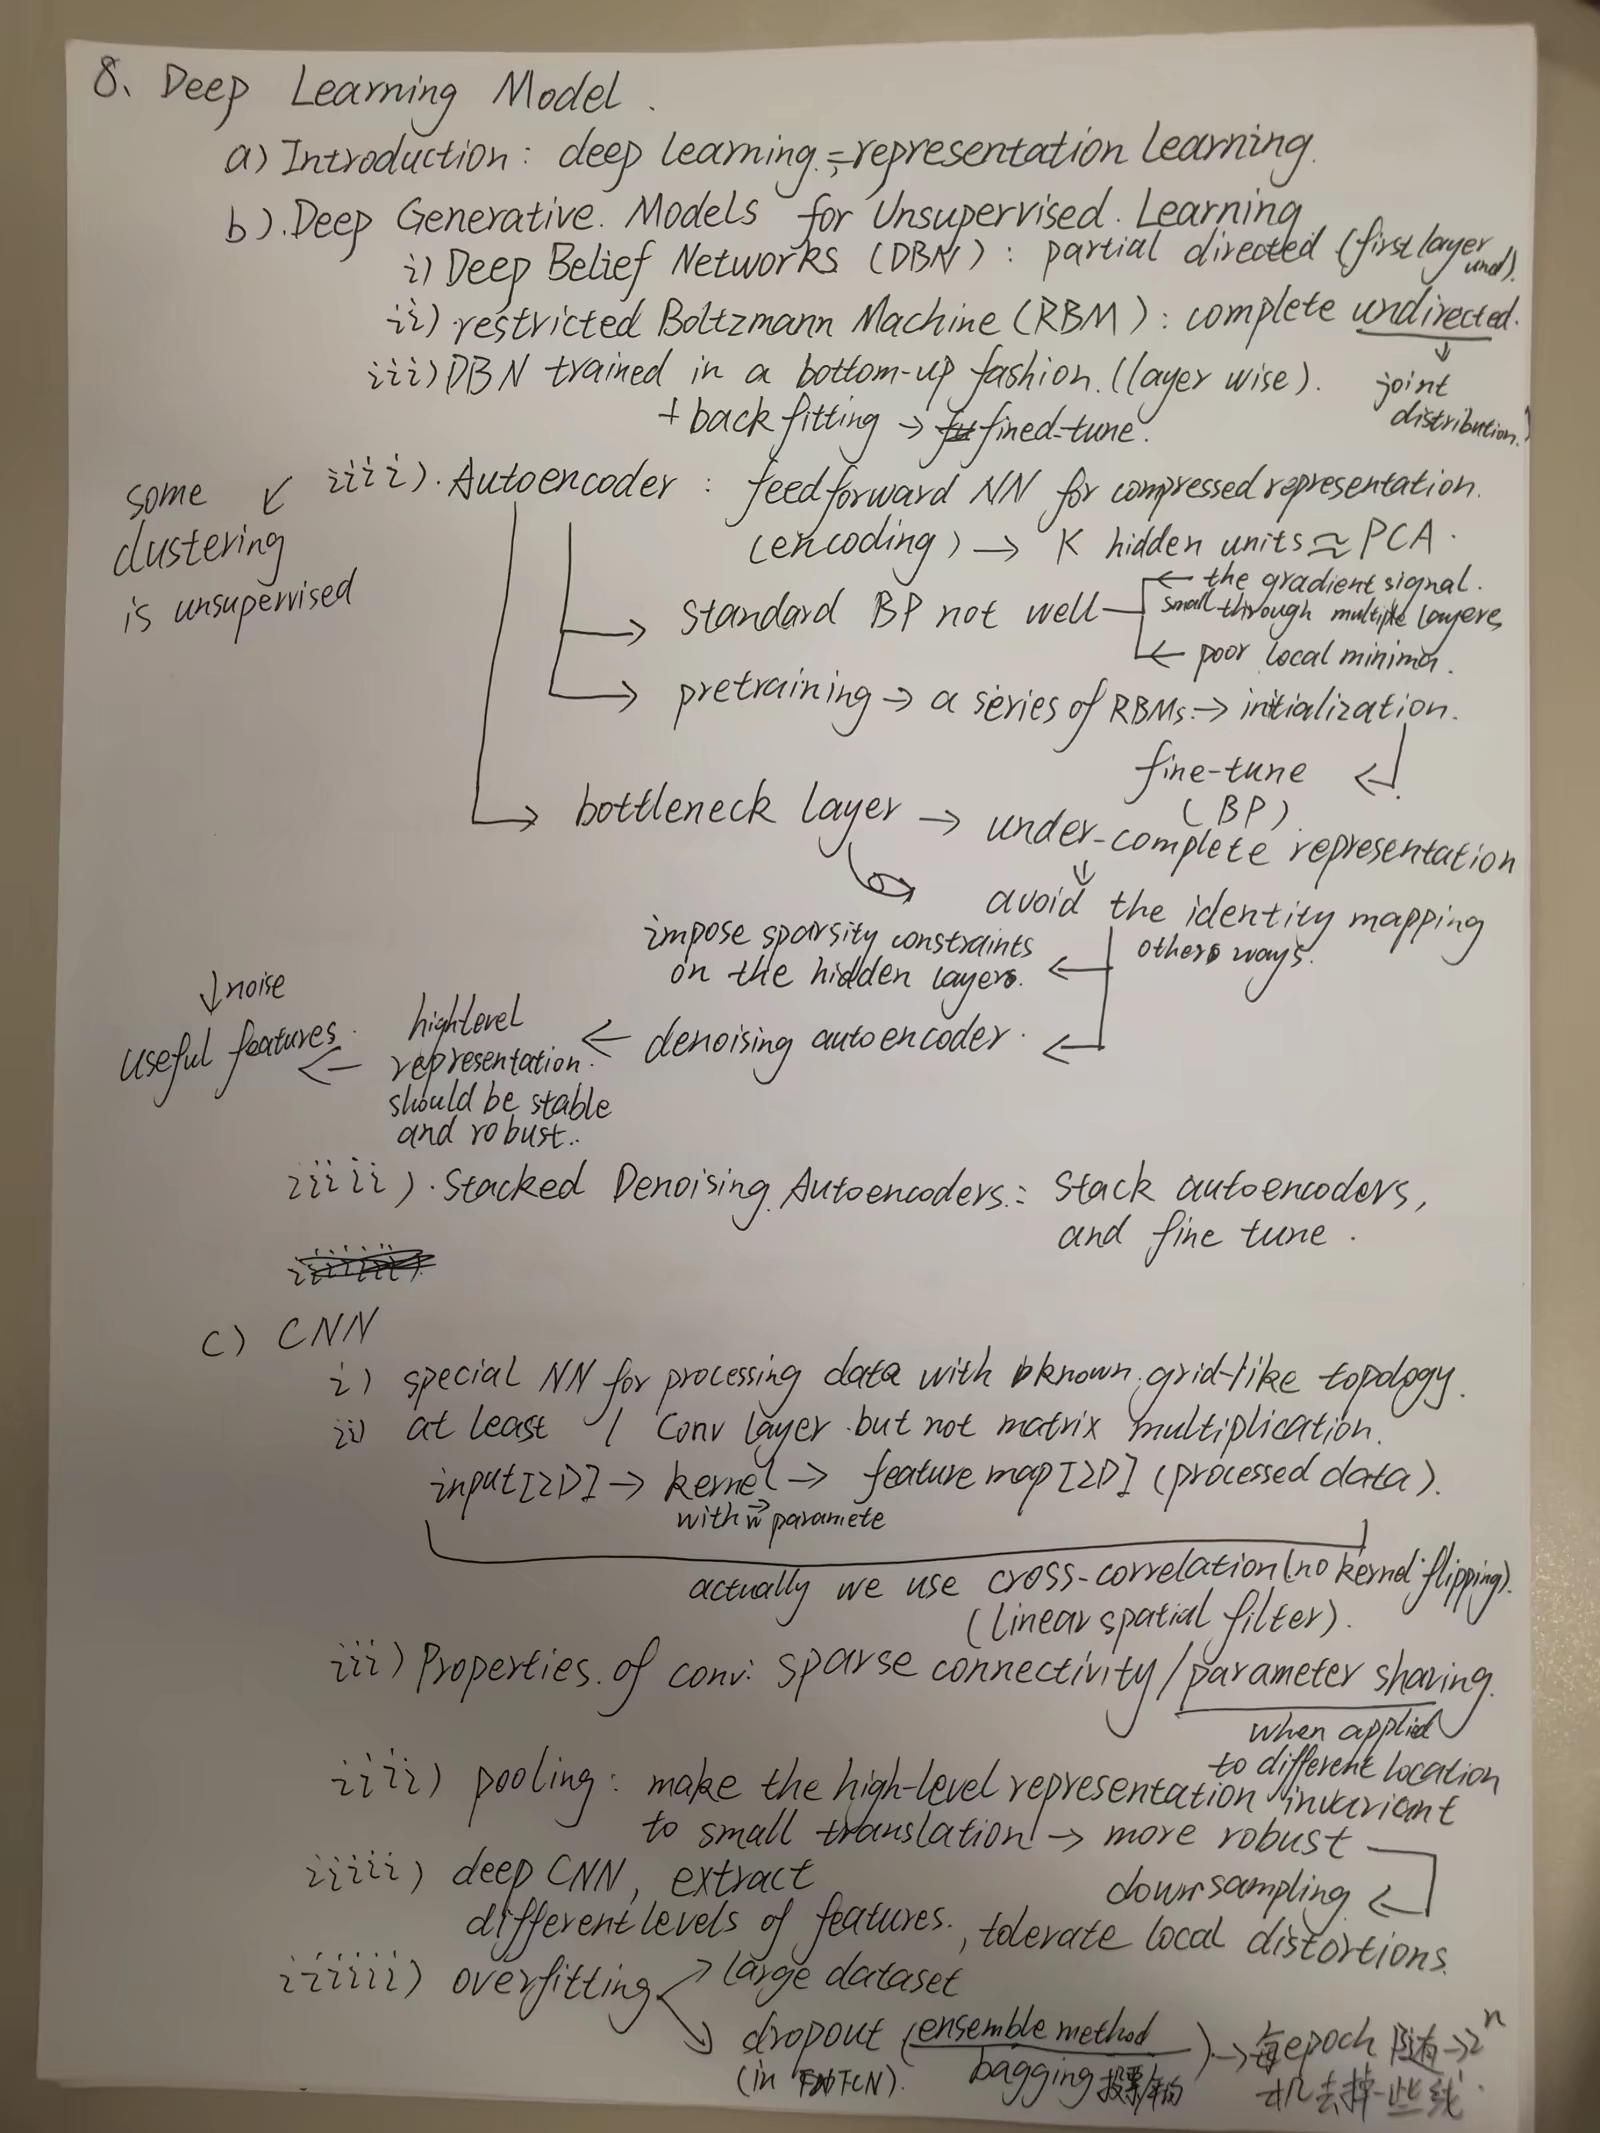 8、Deep Learning Model.
a) Introduction: deep learning = representation Learning.
b). Deep Generative Models for Unsupervised Learning
i) Deep Belief Networks (DBN): partial directed (first layer und).
ii) restricted Boltzmann Machine (RBM): complete undirected.
↓ joint distribution.)
iii) DBN trained in a bottom-up fashion. (layer wise).
+ back fitting → fined-tune.
iiii). Autoencoder: feedforward NN for compressed representation.
(encoding) → K hidden units ≈ PCA.
some ↙
clustering
is unsupervised
standard BP not well
← the gradient signal.
small through multiple layeres
← poor local minima.
pretraining → a series of RBMs. → initialization.
fine-tune ↵
(BP)
→ bottleneck layer → under-complete representation
↓
avoid the identity mapping
others ways.
impose sparsity constraints
on the hidden layers. ←
denoising autoencoder. ←
← high level
representation.
should be stable
and robust..
↓ noise
useful features. ←
iiiii). Stacked Denoising Autoencoders: Stack autoencoders,
and fine tune.
c) CNN
i) special NN for processing data with known grid-like topology.
ii) at least 1 Conv layer but not matrix multiplication.
input[2D] → kernel → feature map[2D] (processed data).
with w⃗ paramete
actually we use cross-correlation (no kernel flipping).
(linear spatial filter).
iii) Properties of conv: sparse connectivity / parameter sharing.
when applied
to different location
iiii) pooling: make the high-level representation invariant
to small translation → more robust
downsampling ↵
iiiii) deep CNN, extract
different levels of features., tolerate local distortions.
iiiiii) overfitting ↗ large dataset
↘ dropout (ensemble method
bagging 投票/平均) → 每epoch 随 → 2ⁿ
(in FCN). 机去掉一些线.